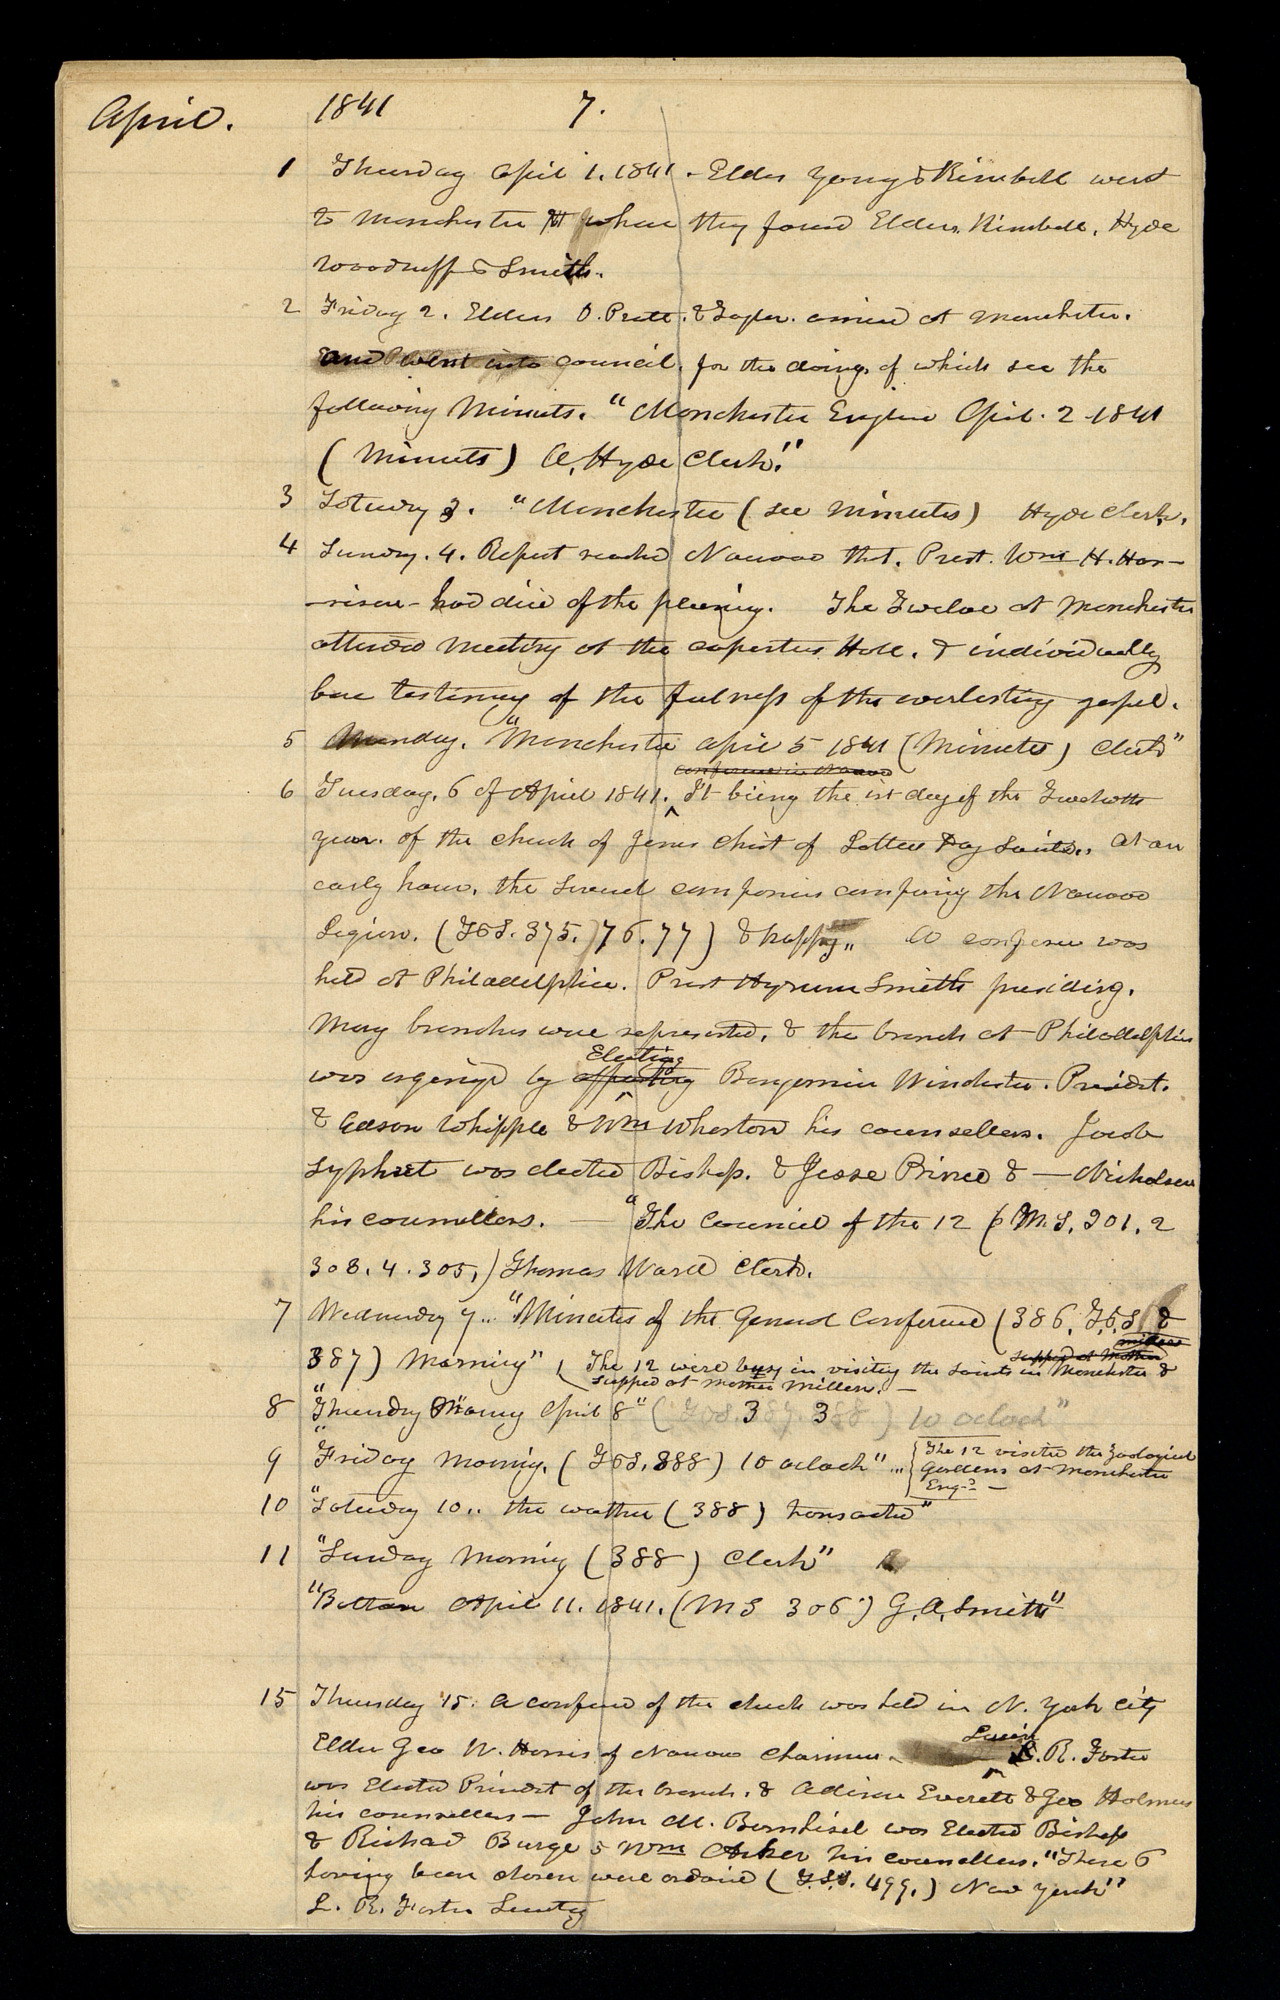 April. 1841 7.
1 Thursday April 1. 1841. Elder Young & Kimball went
to Manchester where they found Elders Kimball, Hyde
Woodruff & Smith.
2 Friday 2. Elders O. Pratt. & Taylor. arrived at Manchester.
and went into council, for the doings of which see the
following Minuts. "Manchester England April. 2 1841
(Minuts) O, Hyde Clerk."
3 Saturday 3. "Manchester (see Minutes) Hyde Clerk.
4 Sunday. 4. Report reached Nauvoo that. Prest. Wm H. Har-
-rison had died of the pleurisy. The Twelve at Manchester
attended Meeting at the carpenters Hall. & individually
bore testimony of the fulness of the everlasting gospel.
5 Monday. "Manchester April 5 1841 (Minutes) Clerk"
conference in Nauvoo
6 Tuesday. 6 of April 1841. It being the 1st day of the Twelveth
year. of the church of Jesus Christ of Latter Day Saints., at an
early hour. the several companies comprising the Nauvoo
Legion. (T&S. 375. 76. 77) & happy" A conference was
held at Philadelphia. Prest Hyrum Smith presiding.
Many branches were represented. & the branch at Philadelphia
Electing
was organized by appointing Benjamin Winchester. President.
& Edson Whipple & Wm Wharton his counsellors. Jacob
Syphret was elected Bishop. & Jesse Prince & — Nicholson
his counsellors. — "The Council of the 12 (M.S. 301. 2
303. 4. 305,) Thomas Ward Clerk.
7 Wednesday 7.. "Minutes of the General Conference (386, T,&,S, &
387) Morning" (The 12 were busy in visiting the Saints in Manchester &
supped at Mother Millers. —
8 "Thursday Morning April 8" (T&S. 387. 388) 10 oclock"
9 "Friday Morning. (T&S. 388) 10 oclock" .. {The 12 visited the Zoological
Gardens at Manchester
Engd. —
10 "Saturday 10.. the weather (388) transacted"
11 "Sunday Morning (388) Clerk"
"Bolton April 11. 1841. (MS 306.) G. A. Smith"
15 Thursday 15. A conference of the church was held in N. York City
Elder Geo W. Harris of Nauvoo Chairman.
Lucien
R. Foster
was Elected President of the branch. & Addison Everett & Geo Holmes
his counsellors — John M. Bernhisel was Elected Bishop
& Richard Burge & Wm Acker his counsellors. "These 6
having been chosen were ordained (T.&.S. 499.) New York"
L. R. Foster Secretary